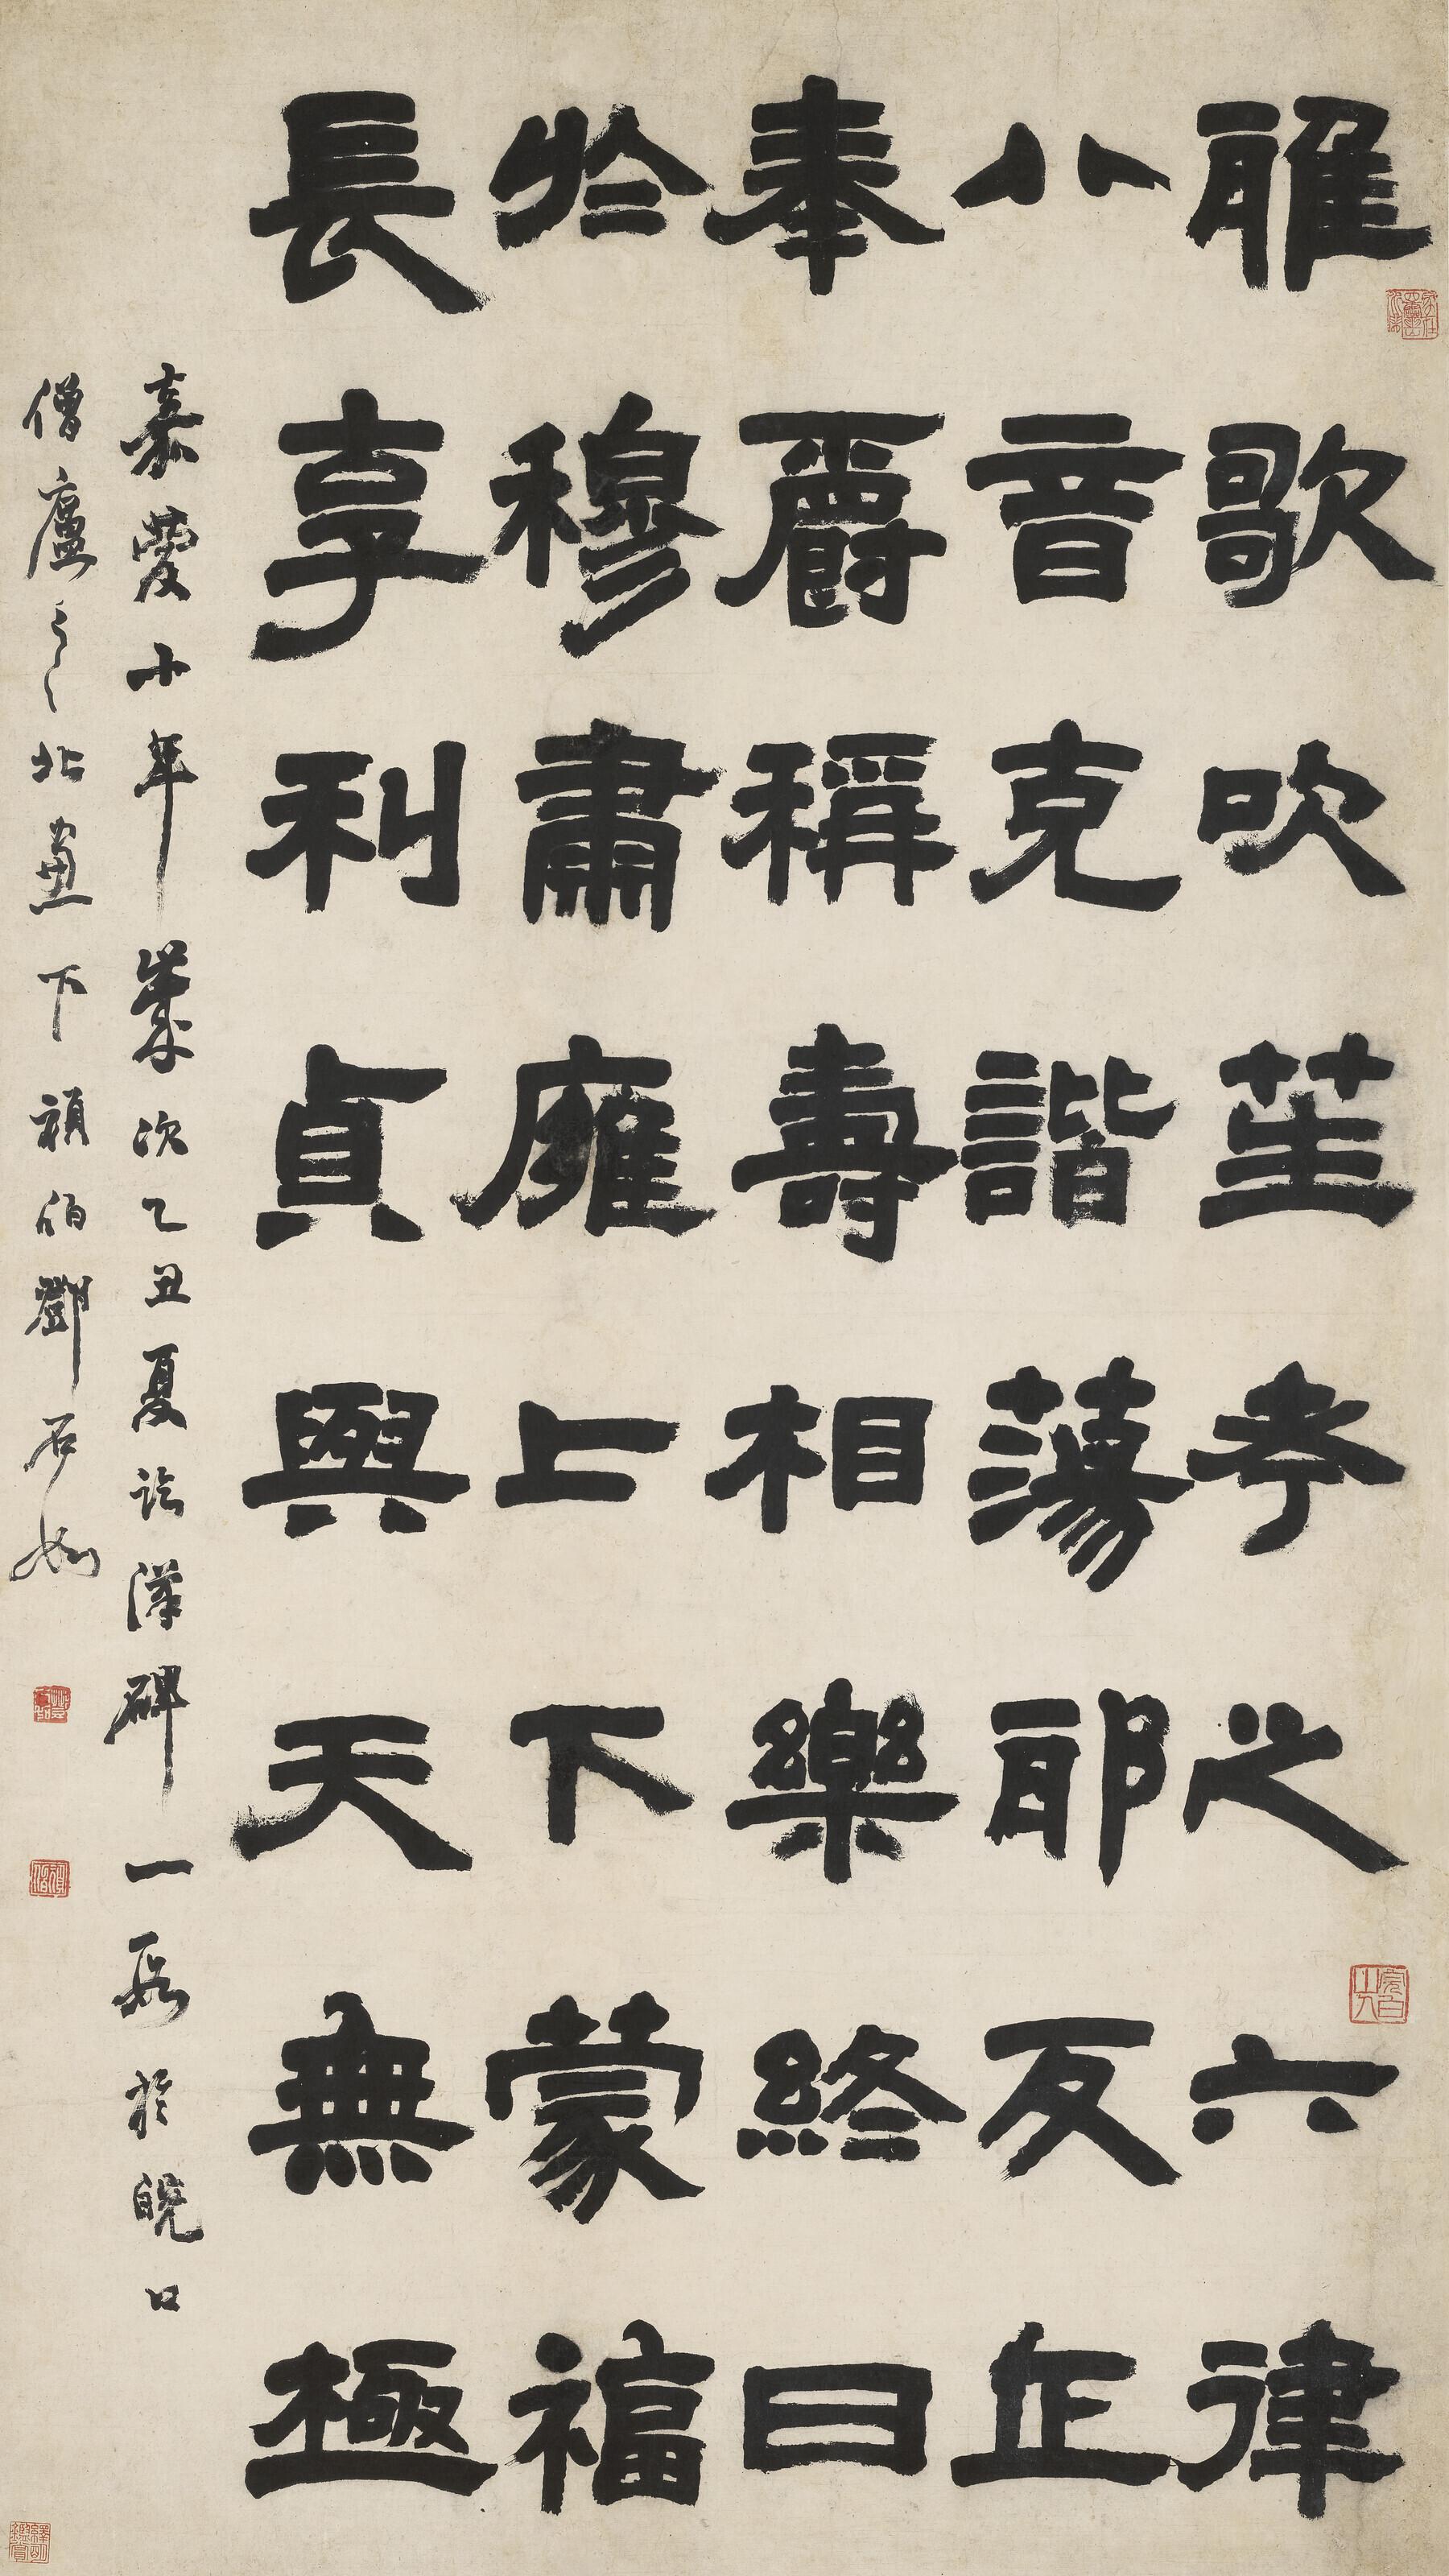 雅歌吹笙考之六律
八音克諧蕩邪反正
奉爵稱壽相樂終日
於穆肅雍上下蒙福
長享利貞與天無極
嘉慶十年歲次乙丑夏臨漢碑一段於皖口
僧廬之北畫下頑伯鄧石如